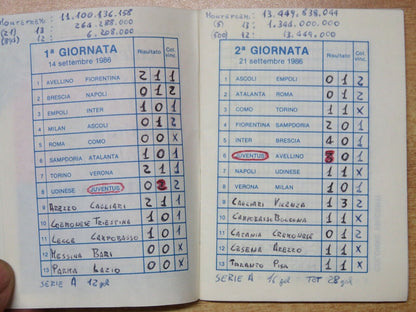 MONTEPREMI: 11.100.136.158
(21) 13 : 264.288.000
(894) 12 : 6.208.000
1ª GIORNATA
14 settembre 1986
Risultato
Col. vinc.
1 AVELLINO FIORENTINA 2 1 1
2 BRESCIA NAPOLI 0 1 2
3 EMPOLI INTER 1 0 1
4 MILAN ASCOLI 0 1 2
5 ROMA COMO 0 0 X
6 SAMPDORIA ATALANTA 1 0 1
7 TORINO VERONA 2 1 1
8 UDINESE JUVENTUS 0 2 2
9 AREZZO CAGLIARI 2 1 1
10 CREMONESE TRIESTINA 1 0 1
11 LECCE CAMPOBASSO 1 0 1
12 MESSINA BARI 0 0 X
13 PARMA LAZIO 0 0 X
SERIE A 12 gol
MONTEPREMI: 13.449.638.044
(5) 13 : 1.344.000.000
(500) 12 : 13.449.000
2ª GIORNATA
21 settembre 1986
Risultato
Col. vinc.
1 ASCOLI EMPOLI 0 1 2
2 ATALANTA ROMA 0 1 2
3 COMO TORINO 1 1 X
4 FIORENTINA SAMPDORIA 2 0 1
5 INTER BRESCIA 4 0 1
6 JUVENTUS AVELLINO 3 0 1
7 NAPOLI UDINESE 1 1 X
8 VERONA MILAN 1 0 1
9 CAGLIARI VICENZA 1 3 2
10 CAMPOBASSO BOLOGNA 1 1 X
11 CATANIA CREMONESE 0 1 2
12 CESENA AREZZO 1 1 X
13 TARANTO PISA 1 1 X
SERIE A 16 gol TOT 28 gol